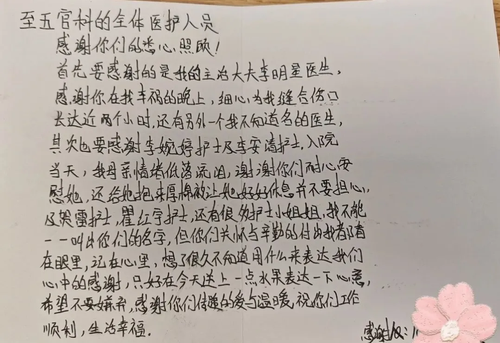 至五官科的全体医护人员
感谢你们的悉心照顾!
首先要感谢的是我的主治大夫李明星医生,
感谢你在我车祸的晚上,细心为我缝合伤口
长达近两个小时,还有另外一个我不知道名的医生,
其次也要感谢李婉婷护士及李安清护士,入院
当天,我母亲情绪低落流泪,谢谢你们耐心安
慰她,还给她抱来厚棉被让她好好休息并不要担心,
及樊雷护士,瞿红宇护士,还有很多护士小姐姐,我不能
一一叫出你们的名字,但你们关怀与辛勤的付出我都看
在眼里,记在心里,想了很久不知道用什么来表达我们
心中的感谢,只好在今天送上一点水果表达一下心意,
希望不要嫌弃,感谢你们传递的爱与温暖,祝你们工作
顺利,生活幸福.
感谢人: